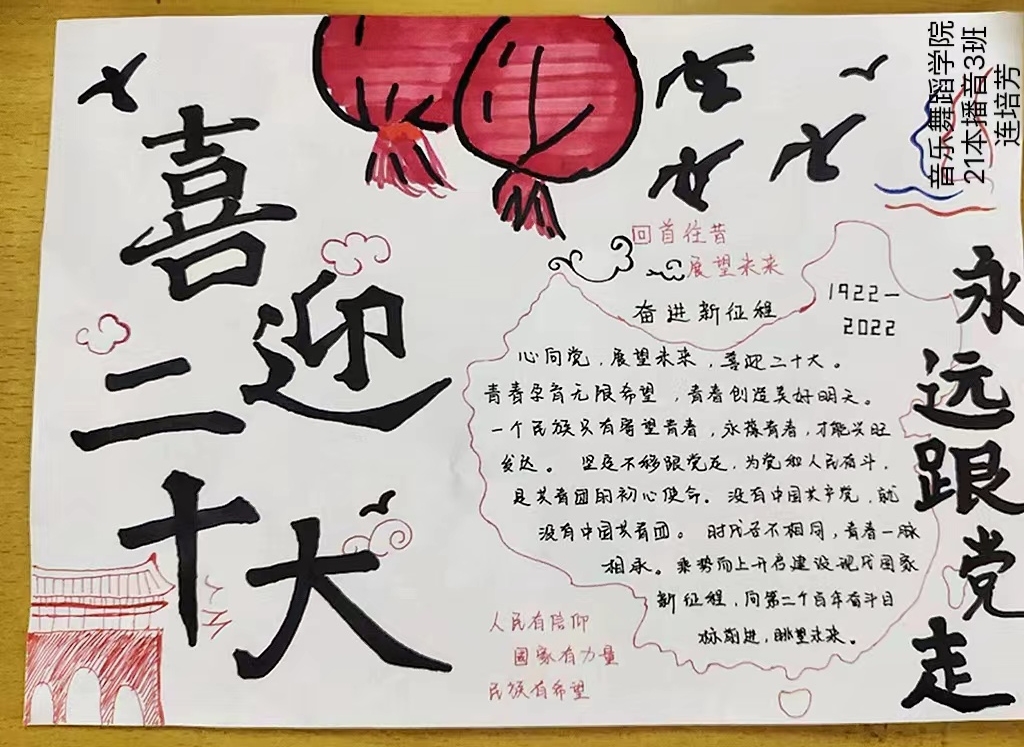 喜迎二十大
回首往昔
展望未来
奋进新征程
1922-
2022
心向党，展望未来，喜迎二十大。
青春孕育无限希望，青春创造美好明天。
一个民族只有寄望青春，永葆青春，才能兴旺
发达。坚定不移跟党走，为党和人民奋斗，
是共青团的初心使命。没有中国共产党，就
没有中国共青团。时代各不相同，青春一脉
相承。乘势而上开启建设现代国家
新征程，向第二个百年奋斗目
标前进，眺望未来。
人民有信仰
国家有力量
民族有希望
永远跟党走
音乐舞蹈学院
21本播音3班
连培芳